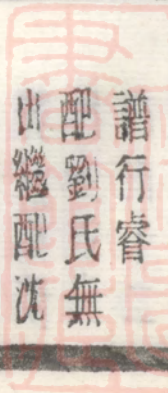 譜行睿
配劉氏無
出繼配沈